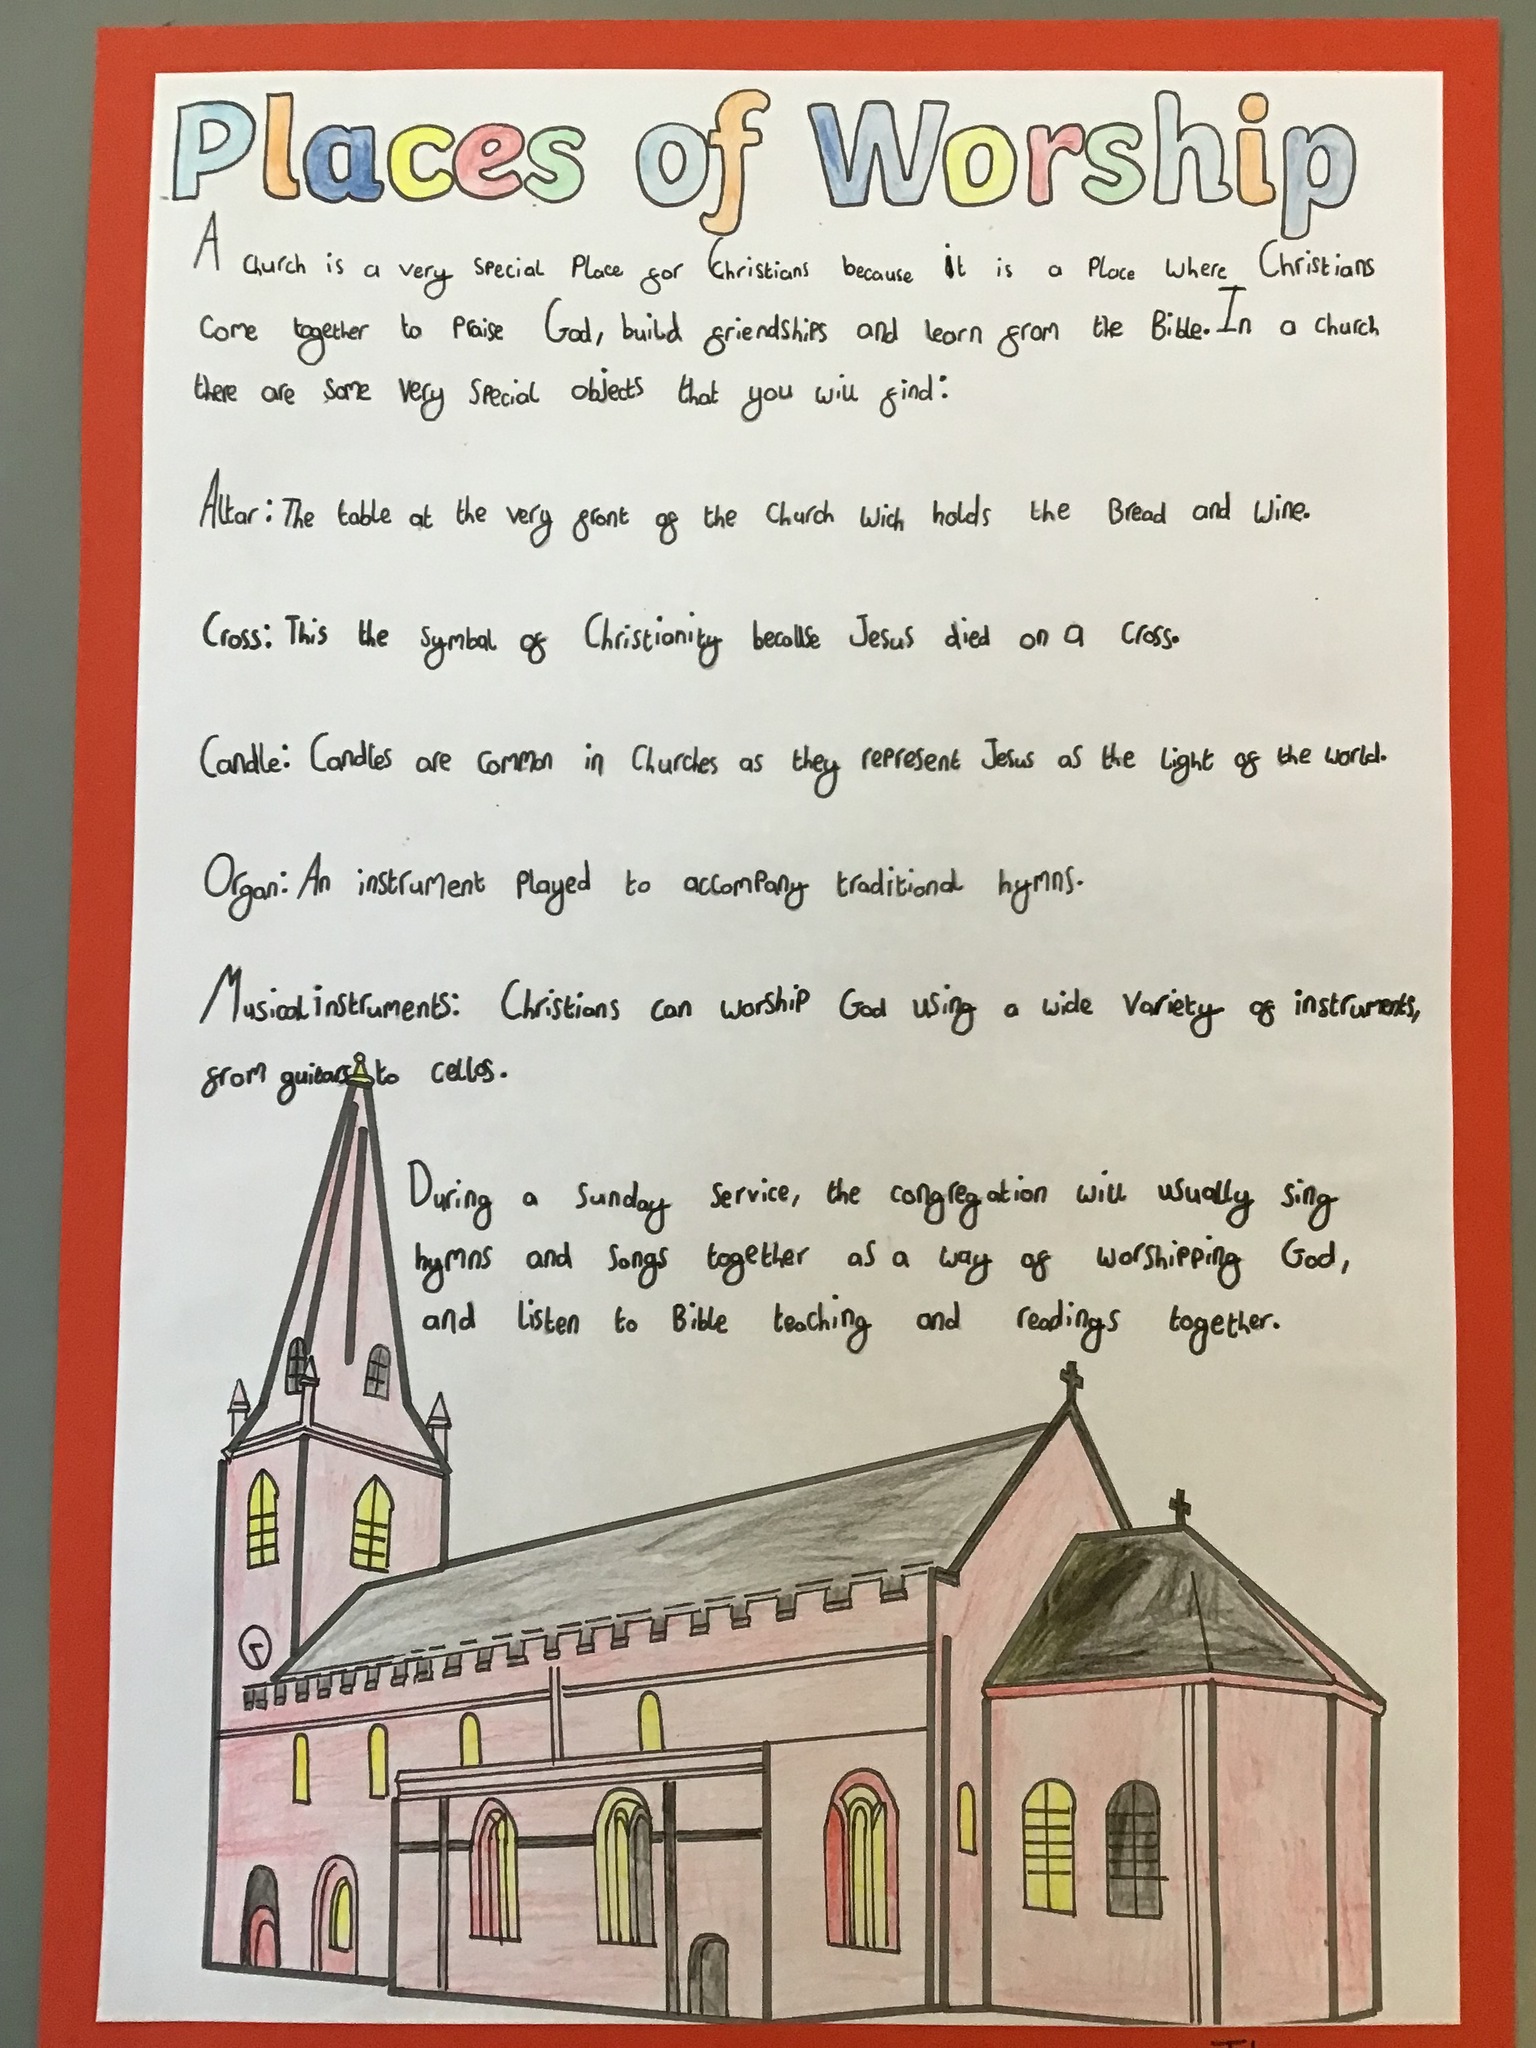 Places of Worship
A church is a very special Place for Christians because it is a Place where Christians
come together to Praise God, build friendships and learn from the Bible. In a church
there are some very special objects that you will find:
Altar: The table at the very front of the church wich holds the Bread and wine.
Cross: This the symbol of Christianity because Jesus died on a cross.
Candle: Candles are common in Churches as they represent Jesus as the light of the world.
Organ: An instrument played to accompany traditional hymns.
Musical instruments: Christians can worship God using a wide variety of instruments,
from guitars to cellos.
During a sunday service, the congregation will usually sing
hymns and songs together as a way of worshipping God,
and listen to Bible teaching and readings together.